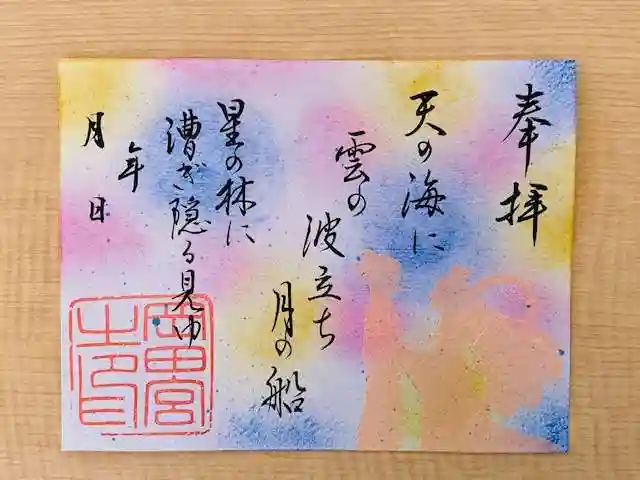 奉拝
天の海に
雲の
波立ち
月の船
星の林に
漕ぎ隠る見ゆ
年
月 日
岡田宮
之印